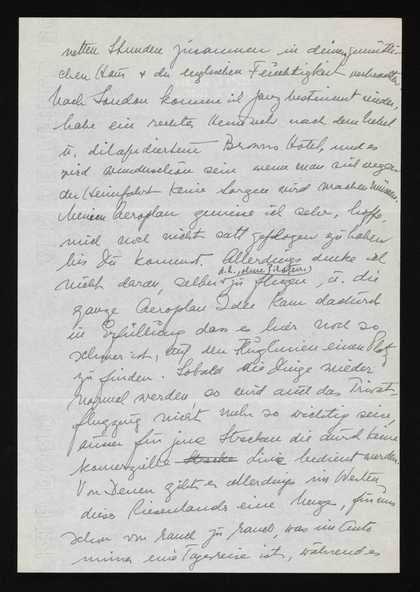 netten Stunden zusammen in deinem gemütli-
chen Haus & der englischen Feuchtigkeit verbrachten
Nach London komme ich ganz bestimmt wieder,
habe ein rechtes Heimweh nach dem Nebel
u. dilapidiertem Browns Hotel, und es
wird wunderschön sein wenn man sich wegen
der Heimfahrt keine Sorgen wird machen müssen.
Meinen Aeroplan geniesse ich sehr, hoffe,
mich noch nicht satt geflogen zu haben
bis Du kommst. Allerdings denke ich
nicht daran, selber zu fliegen, u. die
d.h. ohne Piloten,
ganze Aeroplan Idee kam dadurch
in Erfüllung dass es hier noch so
schwer ist, auf den Fluglinien einen Platz
zu finden. Sobald die Dinge wieder
normal werden so wird auch das Privat-
flugzeug nicht mehr so wichtig sein,
ausser für jene Strecken die durch keine
komerzielle Linie bedient werden.
Von denen gibt es allerdings im Westen
dieses Riesenlands eine Menge, für uns
schon von ranch zu ranch, was im Auto
immer eine Tagesreise ist, während es